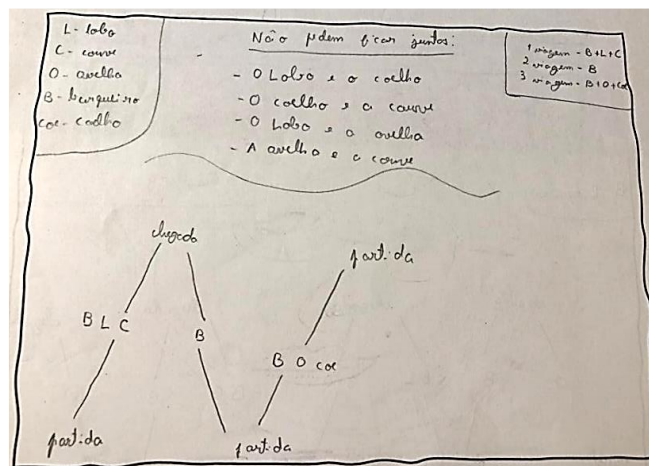 L- lobo
C- couve
O- ovelha
B- barqueiro
coe- coelho
Não podem ficar juntos:
- O Lobo e o coelho
- O coelho e a couve
- O Lobo e a ovelha
- A ovelha e a couve
1 viagem - B+L+C
2 viagem - B
3 viagem - B+O+coe
chegada
partida
B L C
B
B O coe
partida
partida